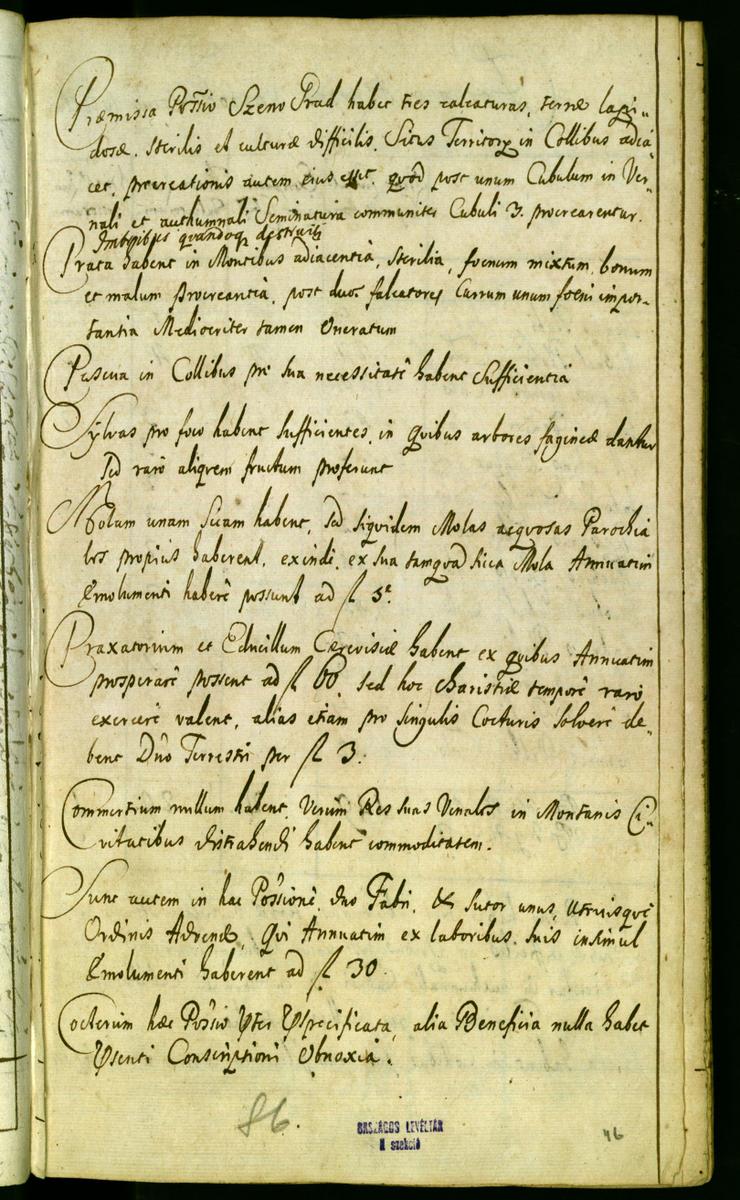 Præmissa Possio Szeno Prad habet tres calcaturas, terræ lapi„
dosæ, sterilis et culturæ difficilis, Situs Territory in Collibus adia„
cet, procreationis autem eius est, quod post unum Cubulum in Ver„
nali et authumnali Seminatura communiter Cubuli 3. procrearentur.
Imbribus quandoq destruit
Prata habent in Montibus adiacentia, sterilia, foenum mixtum, bonum
et malum procreantia, post duos falcatores Currum unum foeni impor„
tantia Mediocriter tamen Oneratum
Pascua in Collibus pro sua necessitate habent Sufficientia
Sylvas pro foco habent sufficientes, in quibus arbores fagineæ dantur
sed raro aliqvem fructum proferunt
Molam unam Sicam habent, sed siqvidem Molas aqvosas Parochia
les propius haberent, exinde, ex sua tamqvã sicca Mola Annuatim
Emolumenti habere possunt ad f 5.
Praxatorium et Educillum Cerevisiæ habent ex qvibus Annuatim
prosperare possent ad f 60, sed hoc charistiæ tempore raro
exercere valent, alias etiam pro singulis Cocturis solvere de„
bent Dnõ Terrestri per f 3.
Commertium nullum habent, Verum Res suas Venales in Montanis Ci„
vitatibus distrahendi habent commoditatem.
Sunt autem in hac Possione, duo Fabri, & Sutor unus, utriusqve
Ordinis Advenæ, qvi Annuatim ex laboribus suis insimul
Emolumenti haberent ad f 30
Coeterum hæc Possio Pter Pspecificata, alia Beneficia nulla habet
Psenti Conscriptioni Obnoxia.
86.
ORSZÁGOS LEVÉLTÁR
N szekció
46